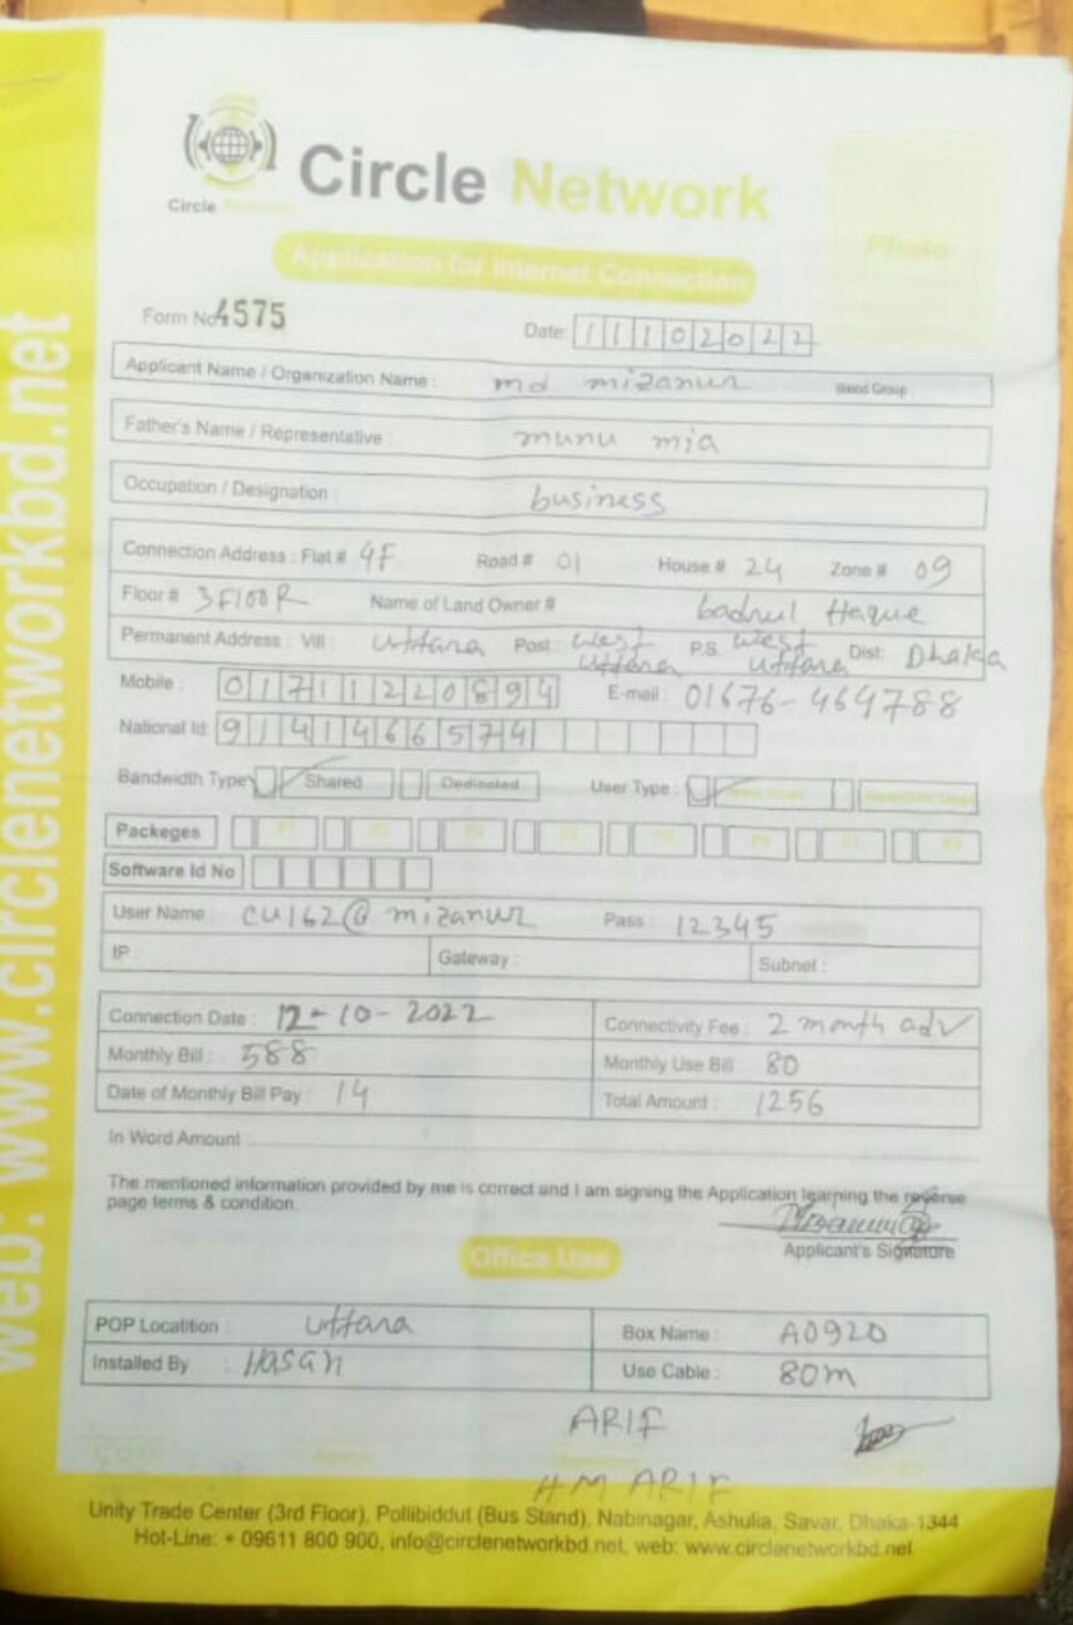 Circle Network
Circle Network
Photo
Application for Internet Connection
Form No 4575
Date: 11102022
Applicant Name / Organization Name : md mizanur Blood Group :
Father's Name / Representative : munu mia
Occupation / Designation : business
Connection Address : Flat # 4F Road # 01 House # 24 Zone # 09
Floor # 3FlooR Name of Land Owner # badrul Haque
Permanent Address : Vill : uttara Post : West uttara P.S. West uttara Dist: Dhaka
Mobile : 01711220894 E-mail : 01676-464788
National Id: 9141466574
Bandwidth Type Shared Dedicated User Type :
Packeges P1 P2 P3 P4 P5 P6 P7 P8
Software Id No
User Name : CU162@mizanur Pass : 12345
IP : Gateway : Subnet :
Connection Date : 12-10-2022 Connectivity Fee : 2 month adv
Monthly Bill : 588 Monthly Use Bill : 80
Date of Monthly Bill Pay : 14 Total Amount : 1256
In Word Amount
The mentioned information provided by me is correct and I am signing the Application learning the reverse
page terms & condition.
Applicant's Signature
Office Use
POP Locatition : uttara Box Name : A0920
Installed By : Hasan Use Cable : 80m
ARIF
HM ARIF
Unity Trade Center (3rd Floor), Pollibiddut (Bus Stand), Nabinagar, Ashulia, Savar, Dhaka-1344
Hot-Line: + 09611 800 900, info@circlenetworkbd.net, web: www.circlenetworkbd.net
web: www.circlenetworkbd.net